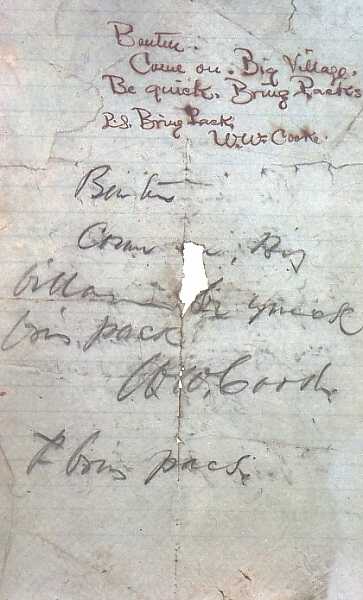 Benteen.
Come on. Big Village.
Be quick. Bring Packs
P.S. Bring Packs
W.W. Cooke
Benteen
Come on, Big
Village be quick
bring packs
W.W. Cooke
P bring pacs.